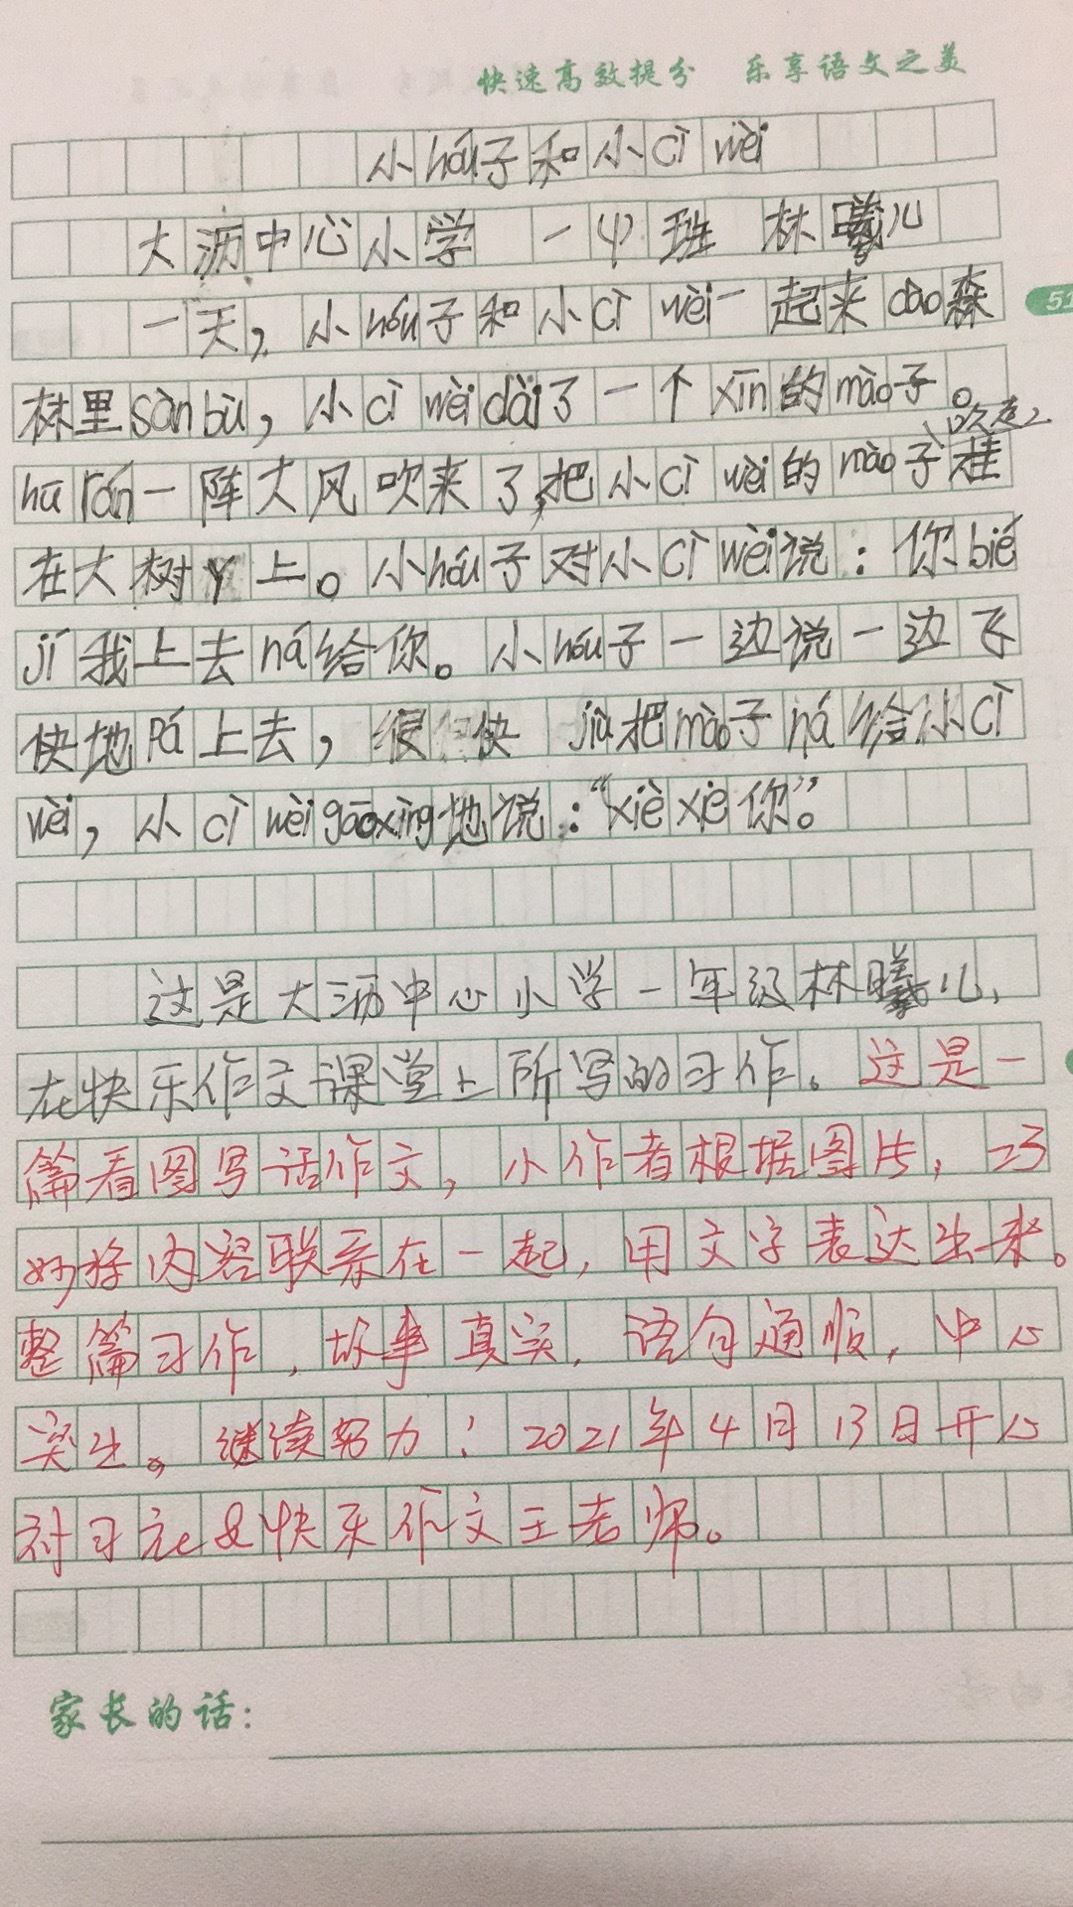 快速高效提分 乐享语文之美
小hóu子和小cì wèi
大沥中心小学 一(4)班 林曦儿
一天，小hóu子和小cì wèi一起来dào森
51
林里sàn bù，小cì wèi dài了一个xīn的mào子。
吹走
hū rán一阵大风吹来了，把小cì wèi的mào子挂
在大树丫上。小hóu子对小cì wèi说：你bié
jí我上去ná给你。小hóu子一边说一边飞
快地pá上去，很快 jiù把mào子ná给小cì
wèi，小cì wèi gāoxìng地说：“xiè xie你”。
这是大沥中心小学一年级林曦儿，
在快乐作文课堂上所写的习作。这是一
篇看图写话作文，小作者根据图片，巧
妙将内容联系在一起，用文字表达出来。
整篇习作，故事真实，语句通顺，中心
突出。继续努力！2021年4月13日开心
快乐作文王老师。
家长的话：